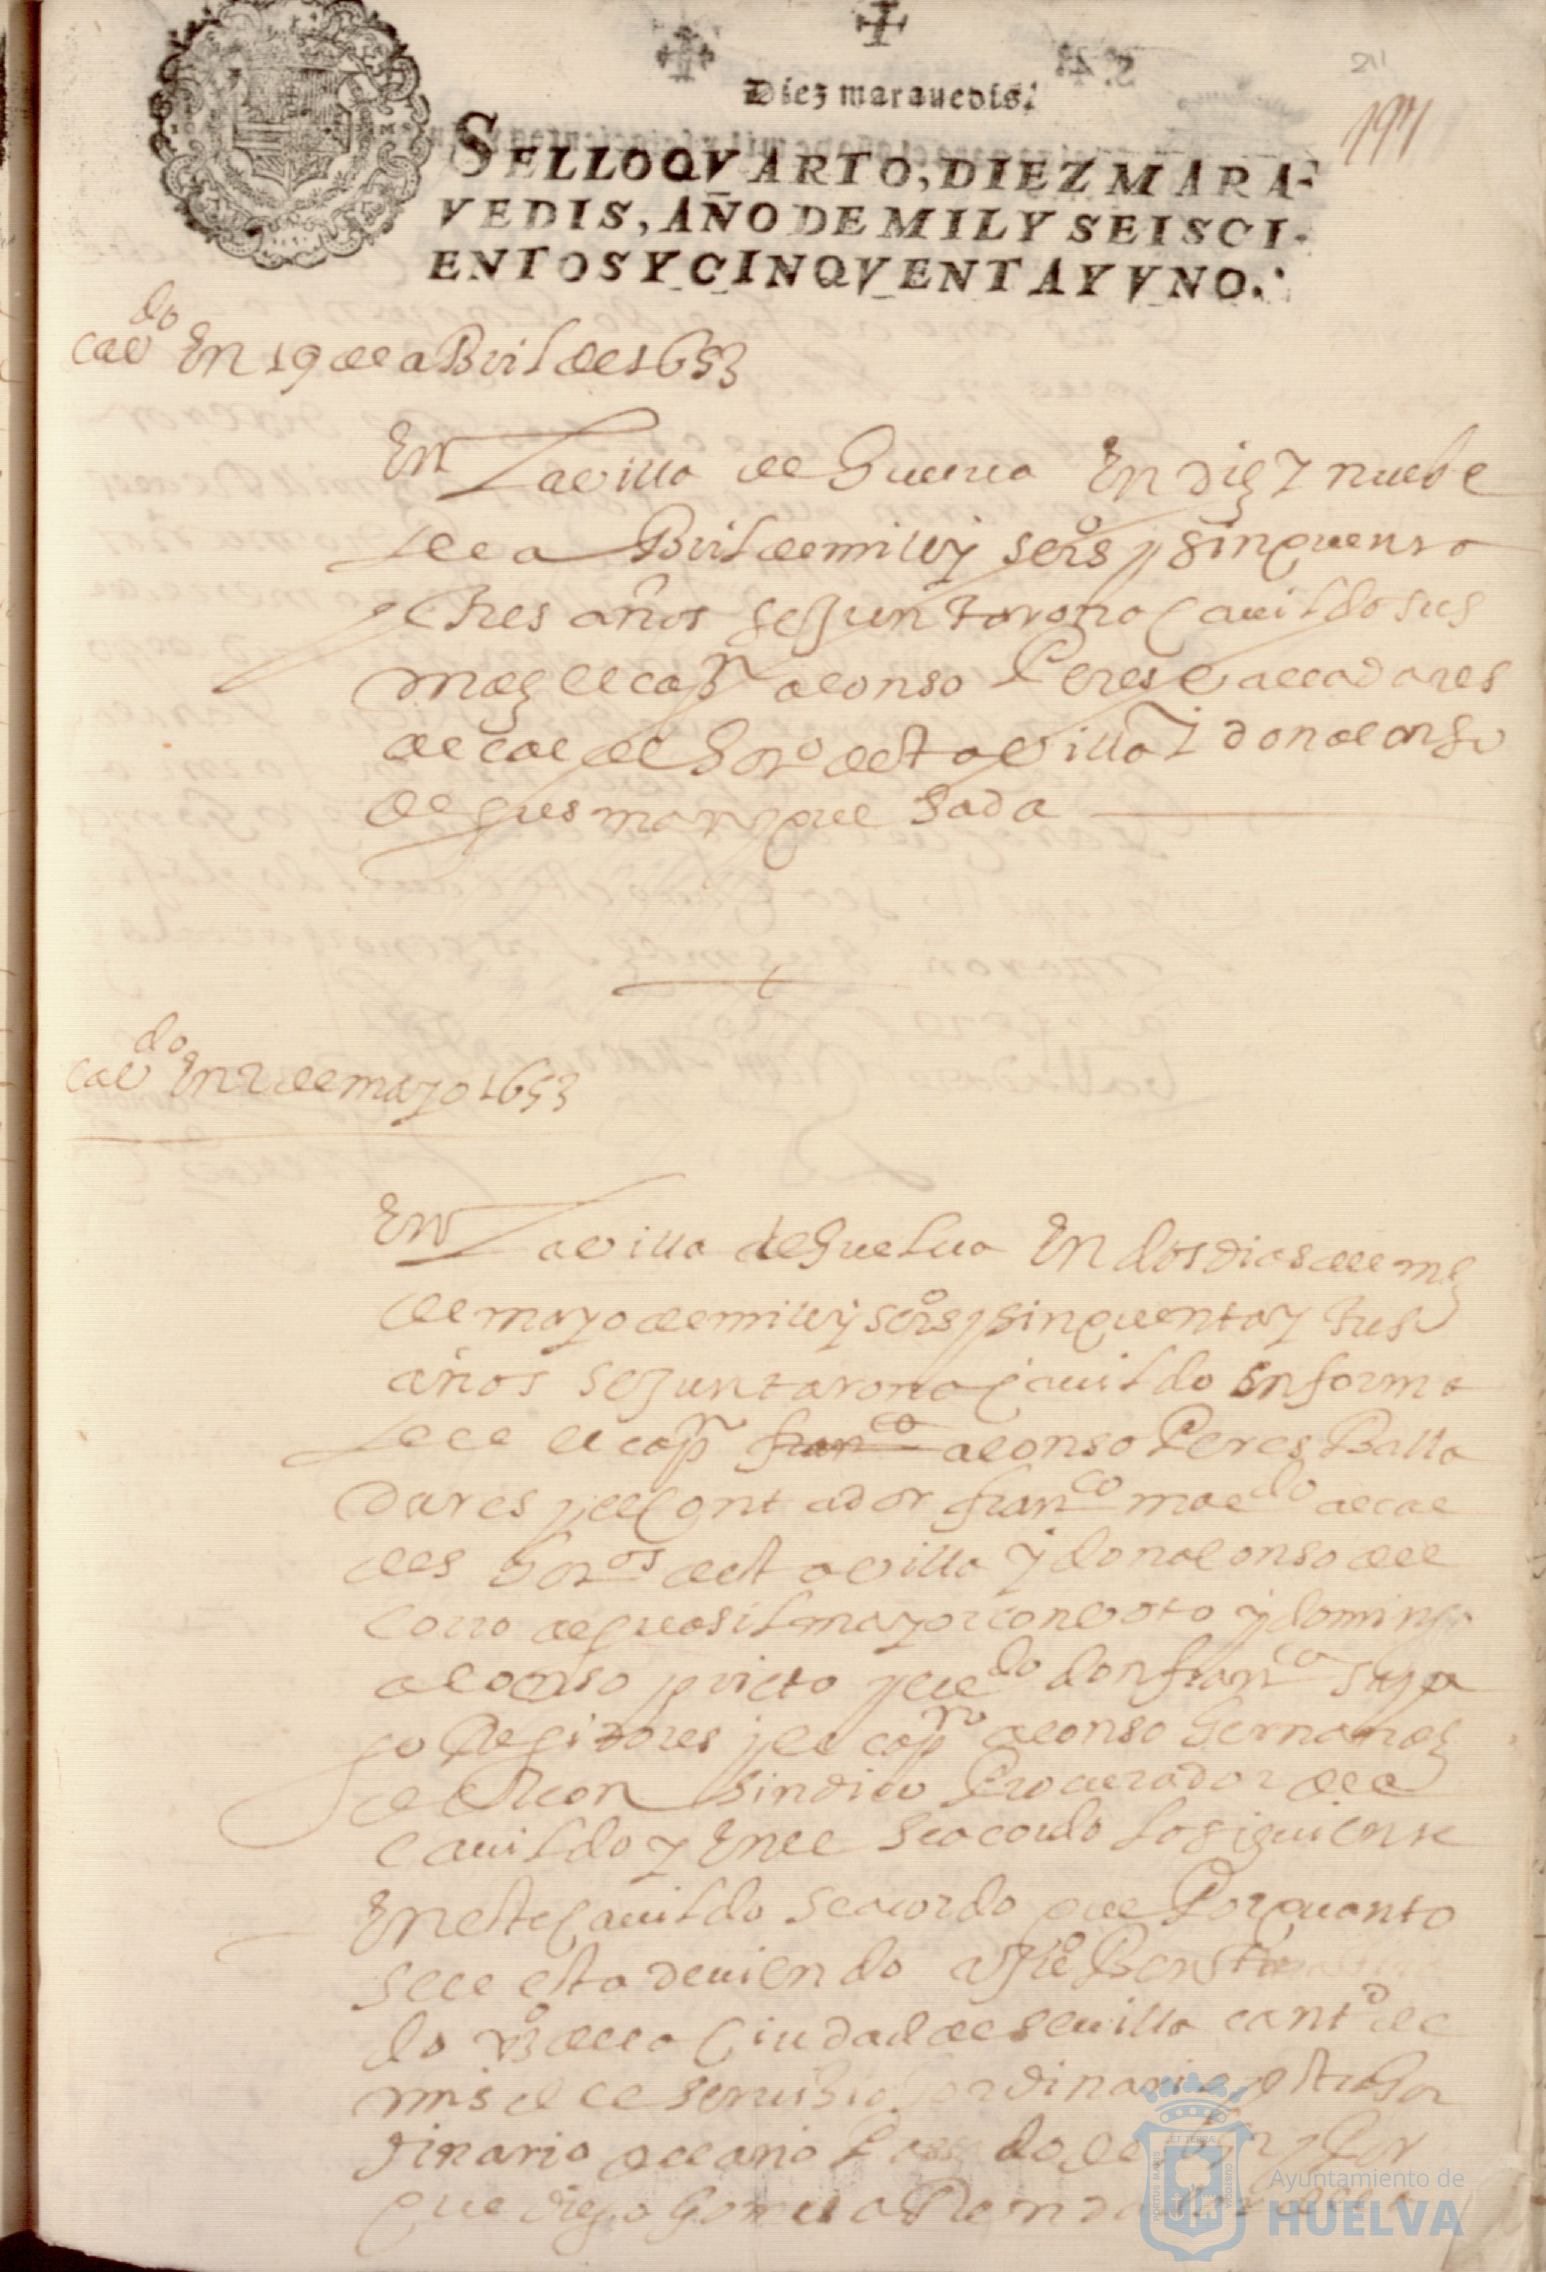 Diez marauedis.
211
197
SELLO QVARTO, DIEZ MARA-
VEDIS, AÑO DE MIL Y SEISCI-
ENTOS Y CINQVENTA Y VNO.
cavdo En 19 de aBril de 1653
En La villa de Guelua En dies y nuebe
de aBril de mill y seiso y sinquenta
y tres años se Juntaron a Cauildo sus
mdes el capn alonso Peres valladares
alcalde hordo desta villa y don alonso
de gusman y quesada
cavdo En 2 de mayo 1653
En La villa de Guelua En dos dias del mes
de mayo de mill y seiso y sinquenta y tres
años se Juntaron a Cauildo En forma
de el capn franco alonso Peres Balla
dares y el Contador franco maldo alcal
des horos desta villa y don alonso del
corro alguasil mayor con voto y domingo
alonso prieto y el ldo don franco
go Regidores y el capn alonso hernandes
de sindico Procurador del
cauildo y En el se acordo lo siguiente
En este Cauildo se acordo que Por quanto
se le esta deuiendo a
do vo de la Ciudad de seuilla cantd de
mrs de el seruisio ordinario y estrahor
dinario del año Pasado de y Por
que diego Gomes
Ayuntamiento de
HUELVA